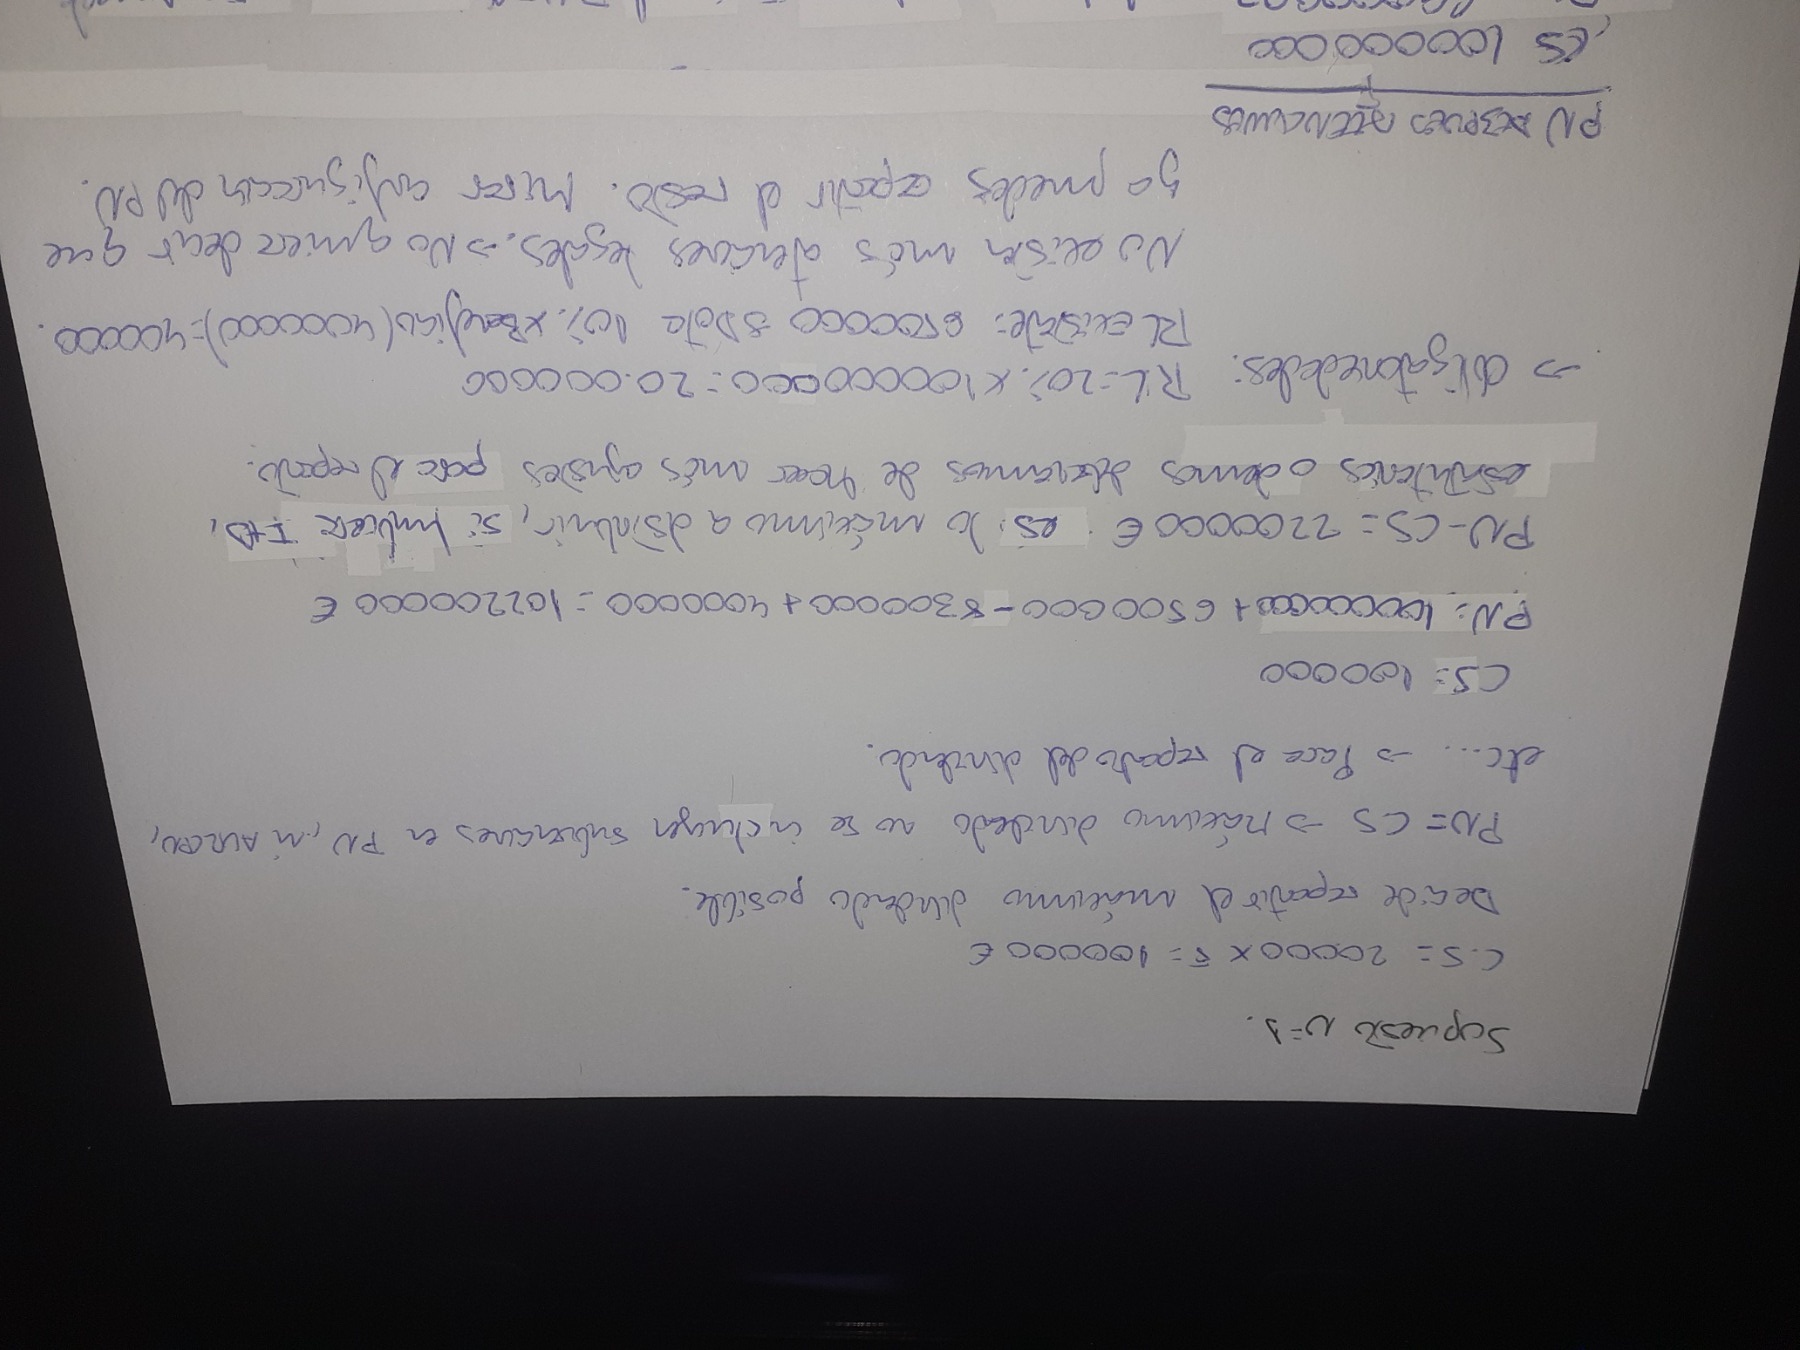 Supuesto N=1.
C.S = 20000 x 5 = 100000 €
Decide repartir el máximo dividendo posible.
PN = CS → Máximo dividendo no se incluyen subvenciones en PN, ni AUMCPN,
etc... → Para el reparto del dividendo.
CS = 100000
PN = 100000000 + 6500000 - 8300000 + 4000000 = 102200000 €
PN - CS = 2200000 € es lo máximo a distribuir, si hubiera I+D,
estatutarias o demás de hacer más ajustes para el reparto.
→ Obligatoriedades: RL = 20% x 100000000 = 20.000000
RL existente: 6500000 dota 10% x Beneficio (4000000) = 400000.
No existen más atenciones legales. → No quiere decir que
ya puedes repartir el resto. Mirar configuración del PN.
PN DESPUES ATENCIONES
CS 100000000